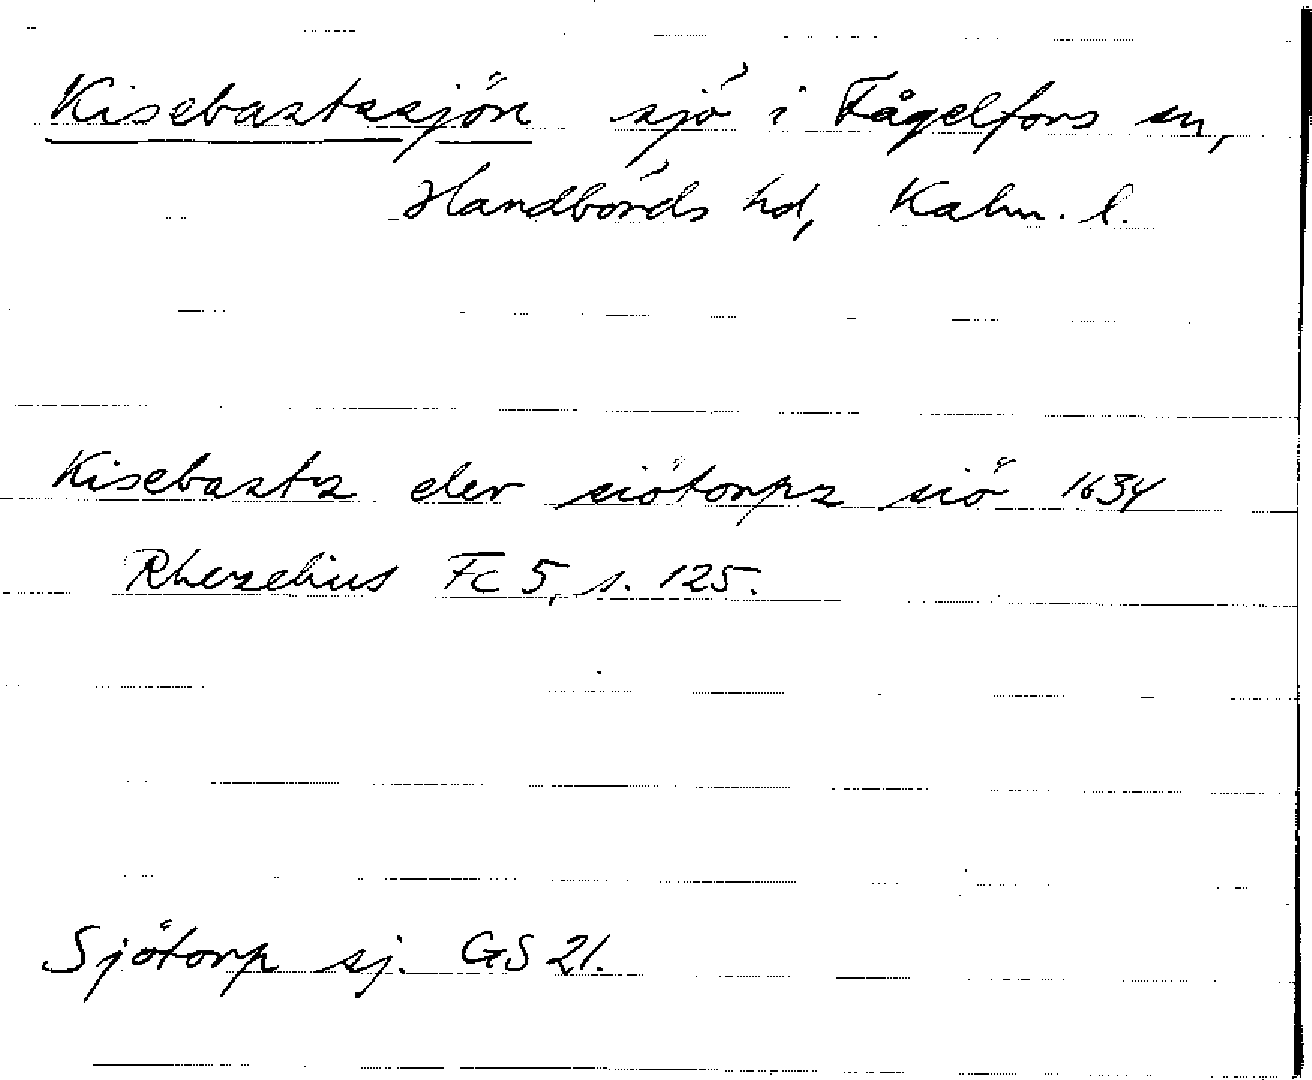 Kisebastasjön sjö i Fågelfors sn,
Handbörds hd, Kalm. l.
Kisebastz eler siötorpz siö 1634
Rhezelius Fc 5, s. 125.
Sjötorp sj. GS 21.